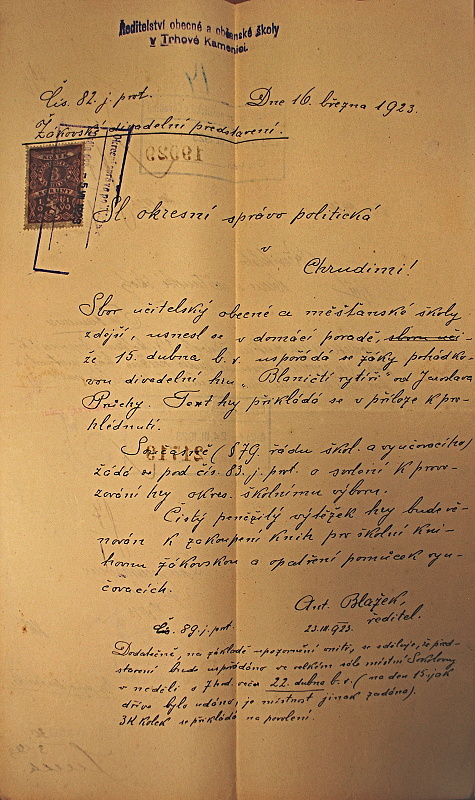 Ředitelství obecné a občanské školy
v Trhové Kamenici
Čís. 82. j. prot. Dne 16. března 1923.
Žákovské divadelní představení.
Sl. okresní správo politická
v
Chrudimi!
Sbor učitelský obecné a měšťanské školy
zdejší, usnesl se v domácí poradě,
že 15. dubna b. r. uspořádá se žáky pohádko-
vou divadelní hru „Blaničtí rytíři" od Jaroslava
Průchy. Text hry přikládá se v příloze k pro-
hlédnutí.
Současně (§ 79. řádu škol. a vyučovacího)
žádá se pod čís. 83. j. prot. o svolení k provo-
zování hry okres. školnímu výboru.
Čistý peněžitý výtěžek hry bude vě-
nován k zakoupení knih pro školní kni-
hovnu žákovskou a opatření pomůcek vyu-
čovacích.
Ant. Blažek,
ředitel.
Čís. 89. j. prot. 23.III.923.
Dodatečně, na základě upozornění, se sděluje, že před-
stavení bude uspořádáno ve velkém sále místní Sokolovny
v neděli o 7 hod. več. 22. dubna b. r. (na den 15. jak
dříve bylo udáno, je místnost jinak zadána).
3K kolek se přikládá na povolení.